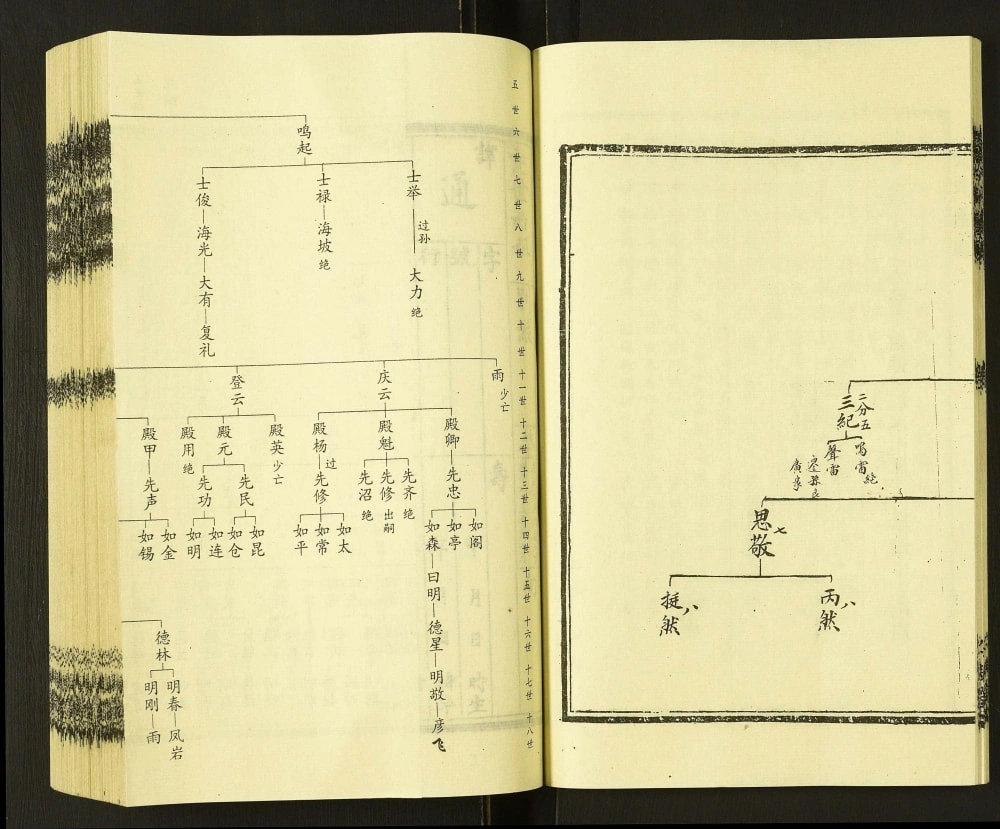 三紀
二分五
鸣雷
絶
聲雷
思敬
七
丙然
八
挺然
八
五世
六世
七世
八世
九世
十世
十一世
十二世
十三世
十四世
十五世
十六世
十七世
十八世
鸣起
士举
过孙
大力
绝
士禄
海坡
绝
士俊
海光
大有
复礼
雨
少亡
庆云
登云
殿卿
先忠
如阁
如亭
如森
曰明
德星
明敬
彦飞
殿魁
先齐
绝
先修
出嗣
先沼
绝
殿杨
过
先修
如太
如常
如平
殿英
少亡
殿元
先民
如昆
如仓
先功
如连
如明
殿用
绝
殿甲
先声
如金
如锡
德林
明春
凤岩
明刚
雨